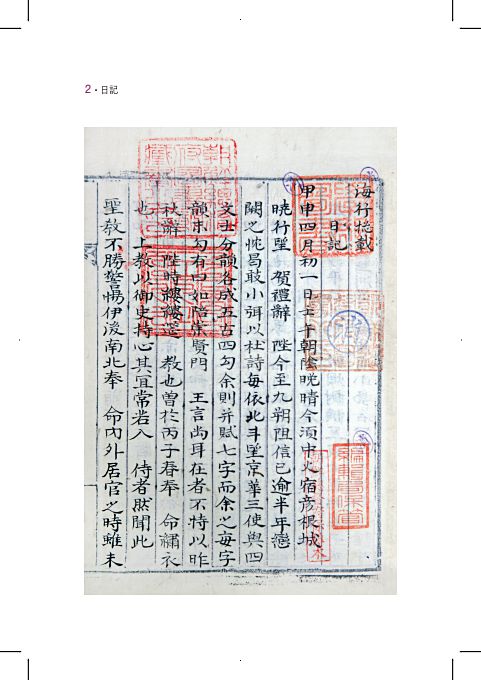 2 · 日記
海行摠載
日記
甲申四月初一日壬午朝陰晩晴今湏中火宿彦根城
曉行望 賀禮辭 陛今至九朔阻信已逾半年戀
闕之忱曷敢小弭以杜詩每依北斗望京華三使與四
文士分韻各成五古四句余則幷賦七字而余之每字
韻末句有曰如陪崇賢門 王言尚耳在者不特以昨
秋辭 陛時縷縷筵 敎也曾於丙子春奉 命繡衣
也 上敎以御史持心其宜常若入 侍者然聞此
聖敎不勝警惕伊後南北奉 命內外居官之時雖未